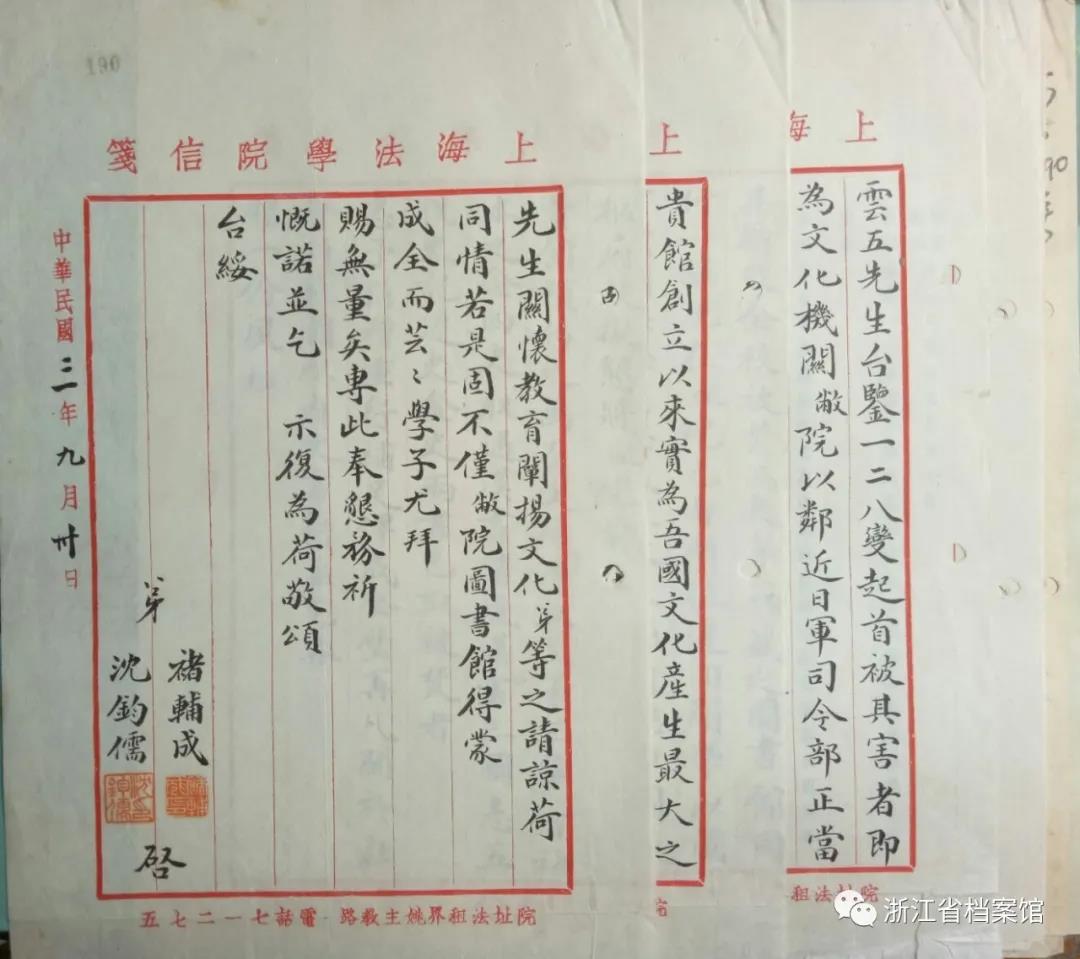 190
上海
雲五先生台鑒一二八變起首被其害者即
為文化機關敝院以鄰近日軍司令部正當
院址法租
上
貴館創立以來實為吾國文化產生最大之
院
上海法學院信箋
先生關懷教育闡揚文化弟等之請諒荷
同情若是固不僅敝院圖書館得蒙
成全而芸〻學子尤拜
賜無量矣專此奉懇務祈
慨諾並乞 示復為荷敬頌
台綏
弟 褚輔成
沈鈞儒
啓
中華民國三一年九月卅日
院址法租界姚主教路 電話七一二七五
浙江省档案馆